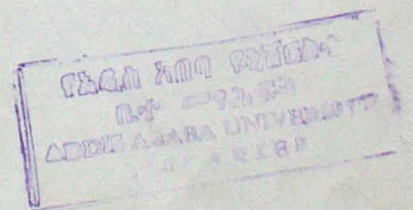 የአዲስ አበባ ዩኒቨርሲቲ
ቤተ መጻሕፍት
ADDIS ABABA UNIVERSITY